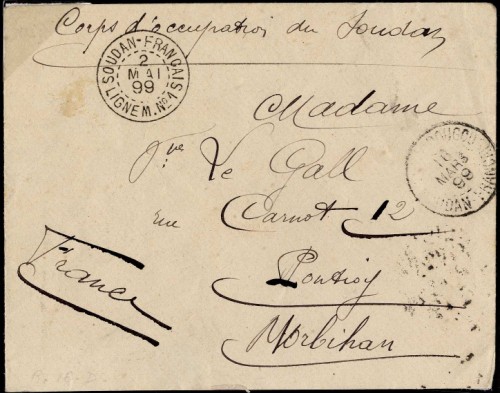 Corps d'occupation du Soudan
SOUDAN-FRANÇAIS
2
MAI
99
LIGNE M. No 1
Madame
Vve Le Gall
rue Carnot 12
Pontivy
Morbihan
France
10
MARS
99
SOUDAN